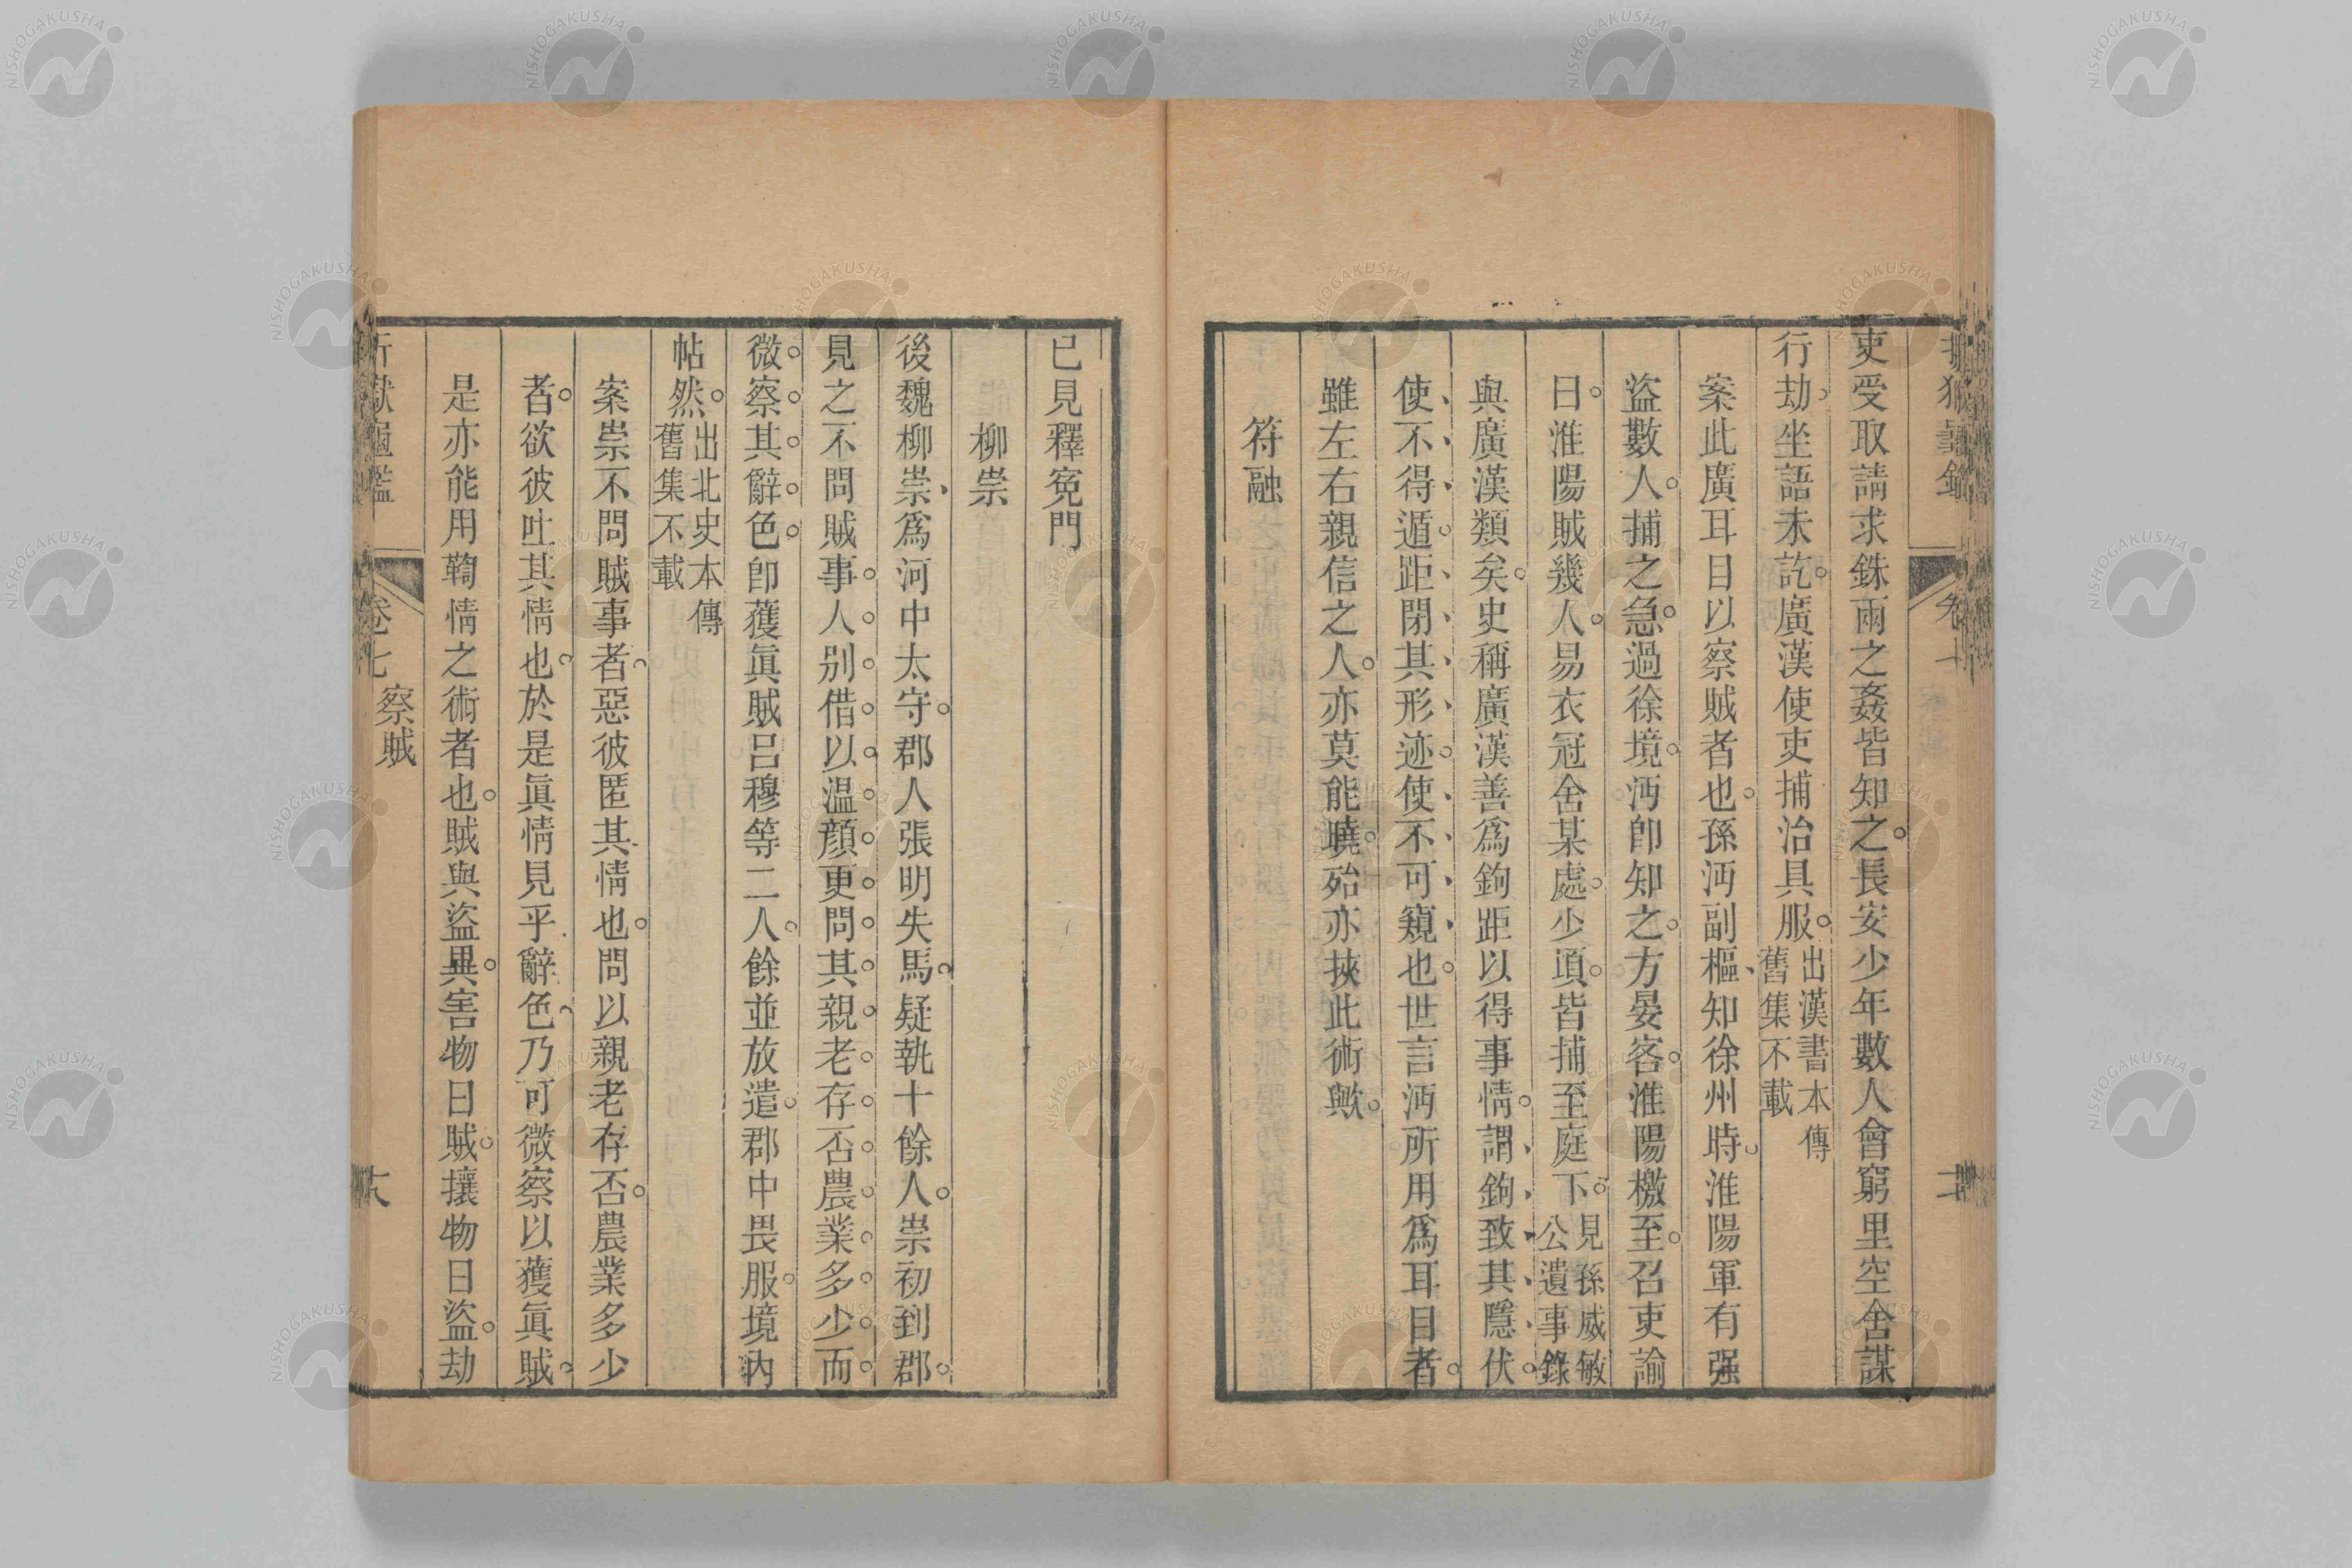 吏受取請求銖兩之姦皆知之。長安少年數人會窮里空舍謀
行劫。坐語未訖。廣漢使吏捕治具服。出漢書本傳
舊集不載
案此廣耳目以察賊者也。孫沔副樞、知徐州時。淮陽軍有强
盜數人。捕之急。過徐境。沔卽知之。方晏客。淮陽檄至。召吏諭
曰。淮陽賊幾人。易衣冠舍某處。少頃。皆捕至庭下。見孫威敏
公遺事錄
與廣漢類矣。史稱廣漢善爲鉤距以得事情。謂鉤致其隱伏。
使不得遁。距閉其形迹。使不可窺也。世言沔所用爲耳目者。
雖左右親信之人。亦莫能曉。殆亦挾此術歟。
符融
已見釋寃門
柳崇
後魏柳崇、爲河中太守。郡人張明失馬。疑執十餘人。崇初到郡。
見之不問賊事。人別借以溫顏更問其親老存否農業多少而
微察其辭色。卽獲眞賊呂穆等二人。餘並放遣。郡中畏服。境內
帖然。出北史本傳
舊集不載
案崇不問賊事者。惡彼匿其情也。問以親老存否。農業多少
者。欲彼吐其情也。於是眞情見乎辭色。乃可微察以獲眞賊。
是亦能用鞫情之術者也。賊與盜異。害物曰賊。攘物曰盜。劫
卷七
察賊